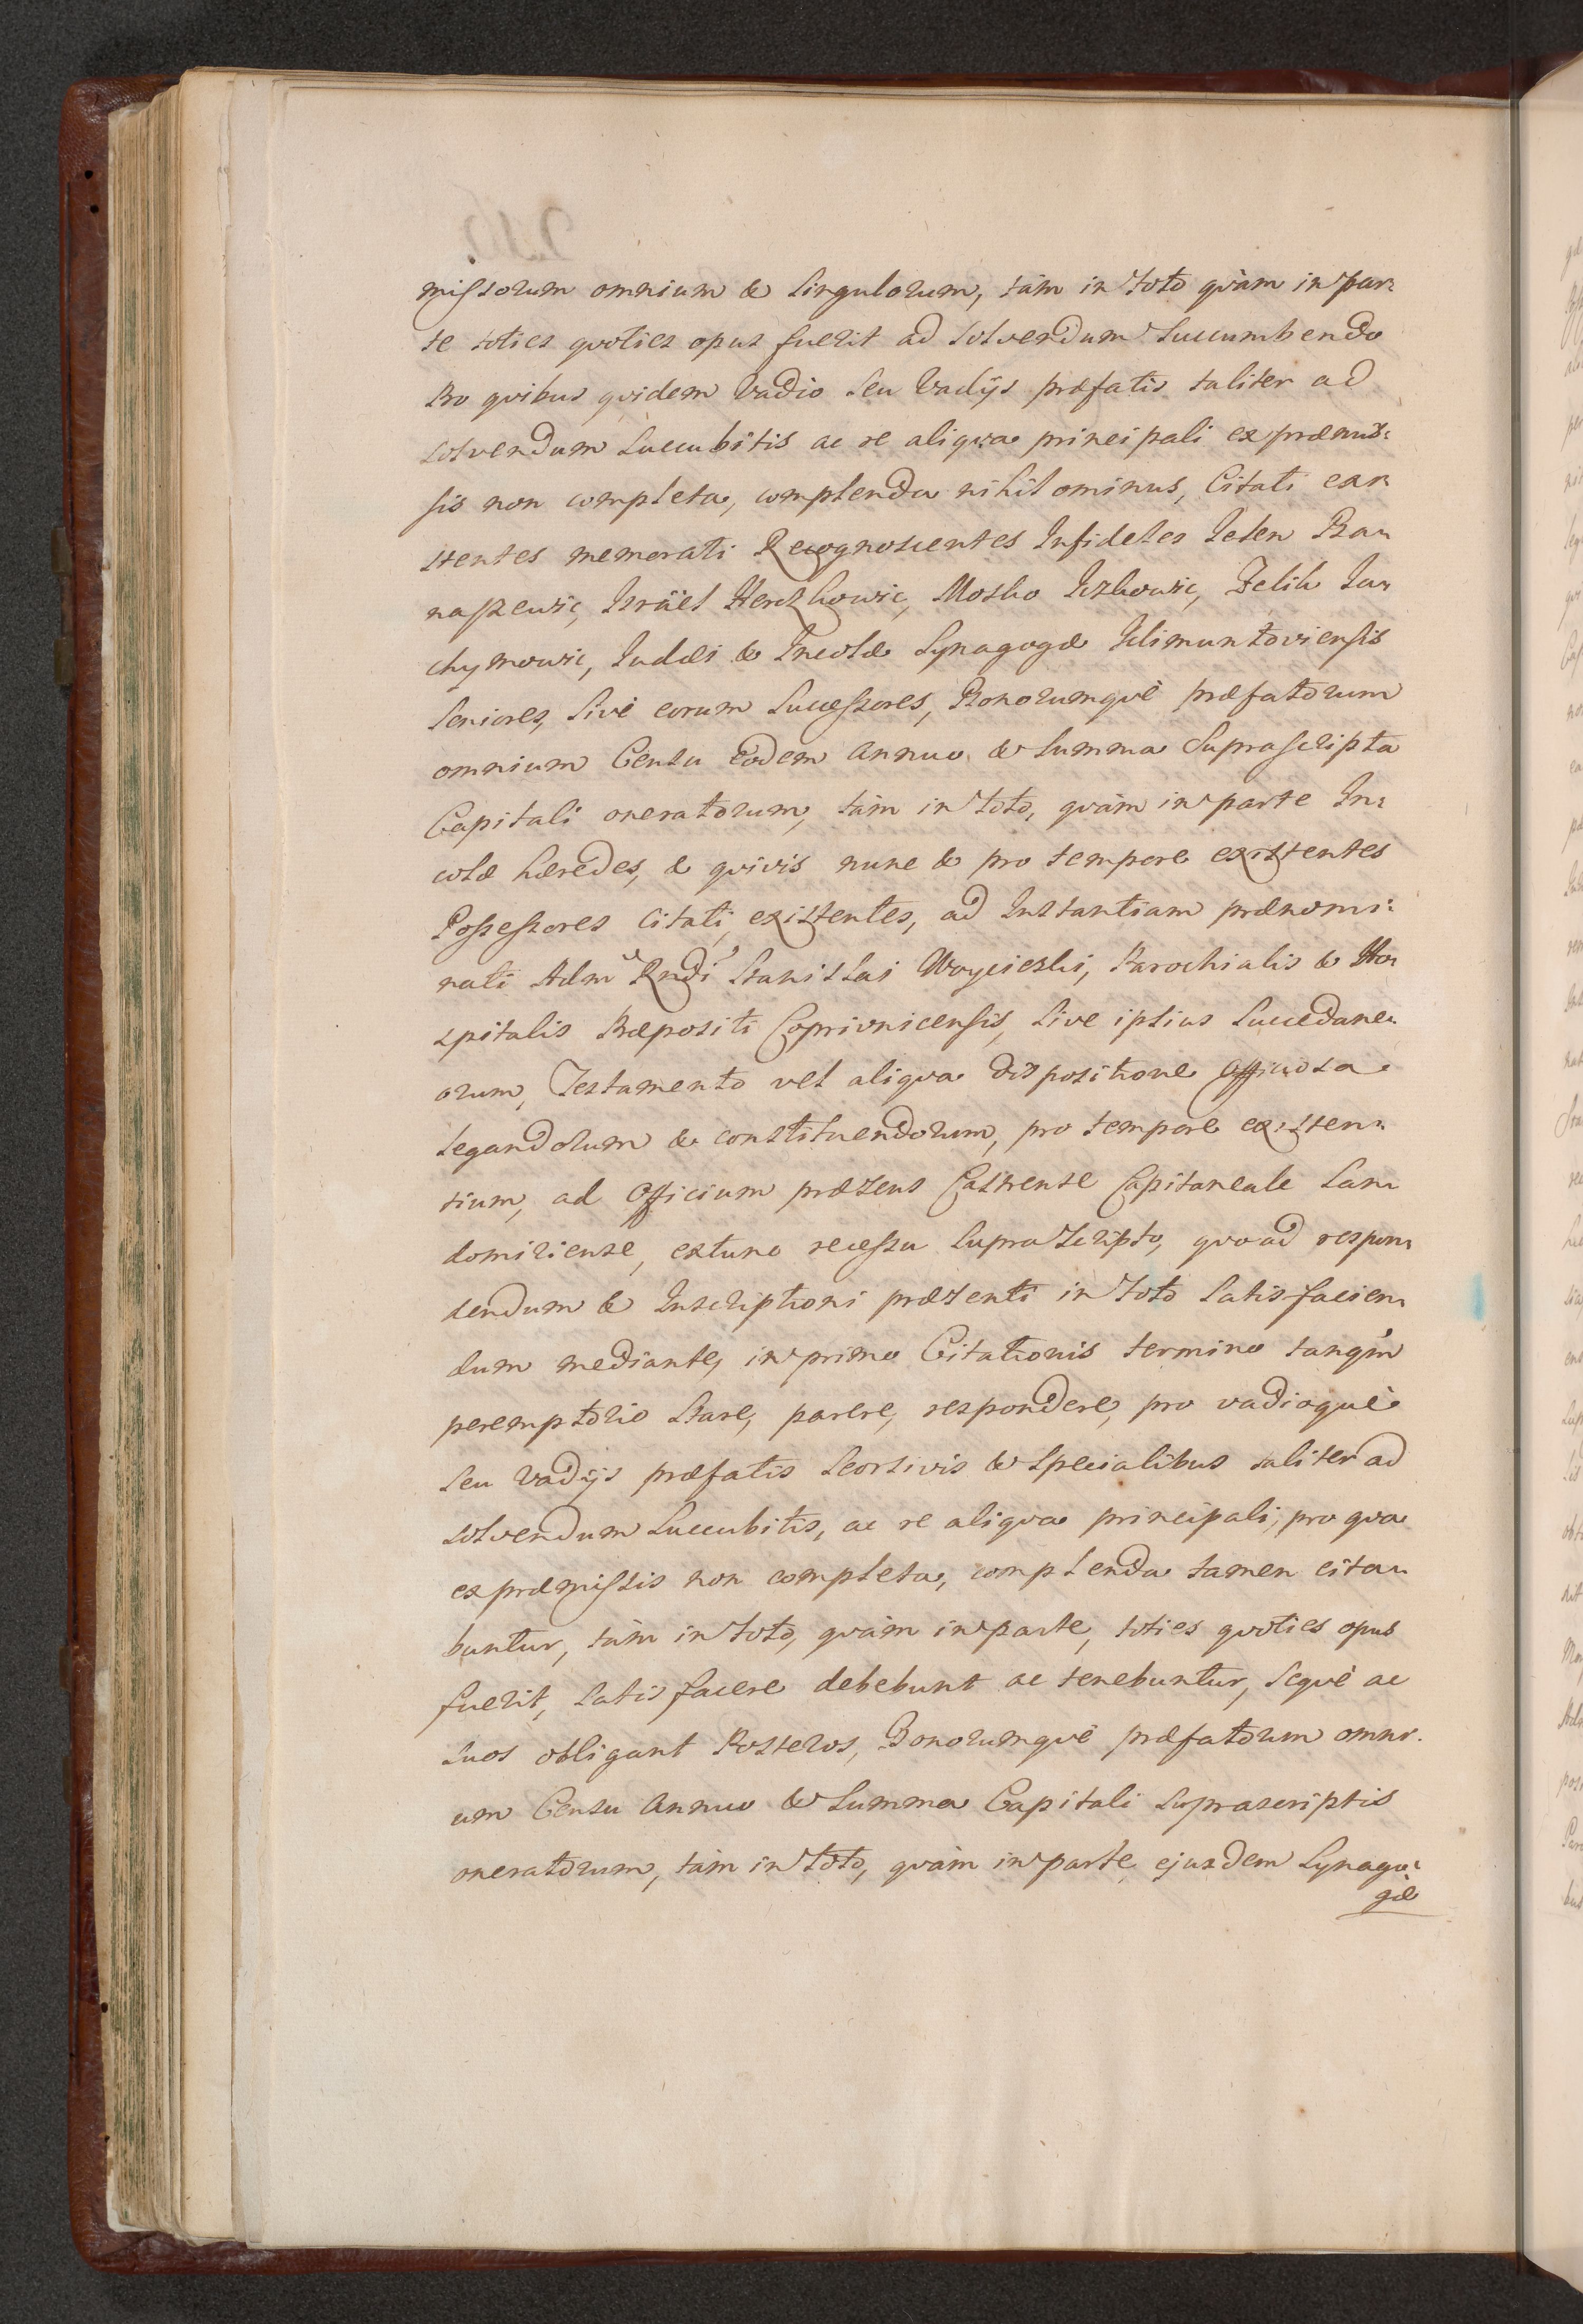 missorum omnium & singulorum, tàm in toto quàm in par:
te toties quoties opus fuerit ad solvendum succumbendo
Pro quibus quidem Vadio seu Vadijs præfatis taliter ad
solvendum succubitis ac re aliqua principali ex præmis:
sis non completa, complenda nihilominus, Citati exi:
stentes memorati Recognoscentes Infideles Leben Ba:
naszewic, Israël Herszkowic, Mosko Iczkowic, Felik Ja:
chymowic, Judæi & Incolæ Synagogæ Klimuntoviensis
Seniores, sivè eorum Successores, Bonorumquè præfatorum
omnium Censu eodem annuo & Summa Suprascripta
Capitali oneratorum, tàm in toto, quàm in parte In:
colæ hæredes, & quivis nunc & pro tempore existentes
Possessores citati existentes, ad Instantiam prænomi:
nati Adm Rndi Stanislai Woycieski, Parochialis & Ho:
spitalis Præpositi Coprivnicensis, sive ipsius Succedane:
orum, Testamento vel aliqua dispositione officiosa
legandorum & constituendorum, pro tempore existen:
tium, ad Officium præsens Castrense Capitaneale San:
domiriense, extunc recessu suprascripto, quoad respon:
dendum & Inscriptioni præsenti in toto satisfacien:
dum mediante, in primo Citationis termino tanqm
peremptorio stare, parere, respondere, pro vadioquè
seu vadijs præfatis seorsivis & specialibus taliter ad
solvendum succubitis, ac re aliqua principali, pro qua
ex præmissis non completa, complenda tamen cita:
buntur, tàm in toto, quàm in parte, toties quoties opus
fuerit, satisfacere debebunt ac tenebuntur, Sequè ac
suos obligant Posteros, Bonorumquè præfatorum omni:
um Censu annuo & Summa Capitali suprascriptis
oneratorum, tàm in toto, quàm in parte ejusdem Synago:
gæ